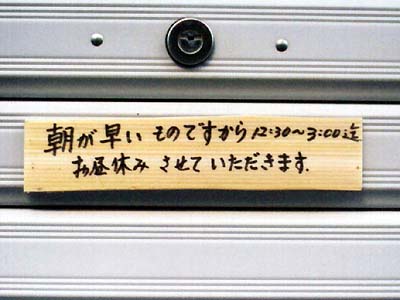 朝が早いものですから12:30〜3:00迄
お昼休みさせていただきます.